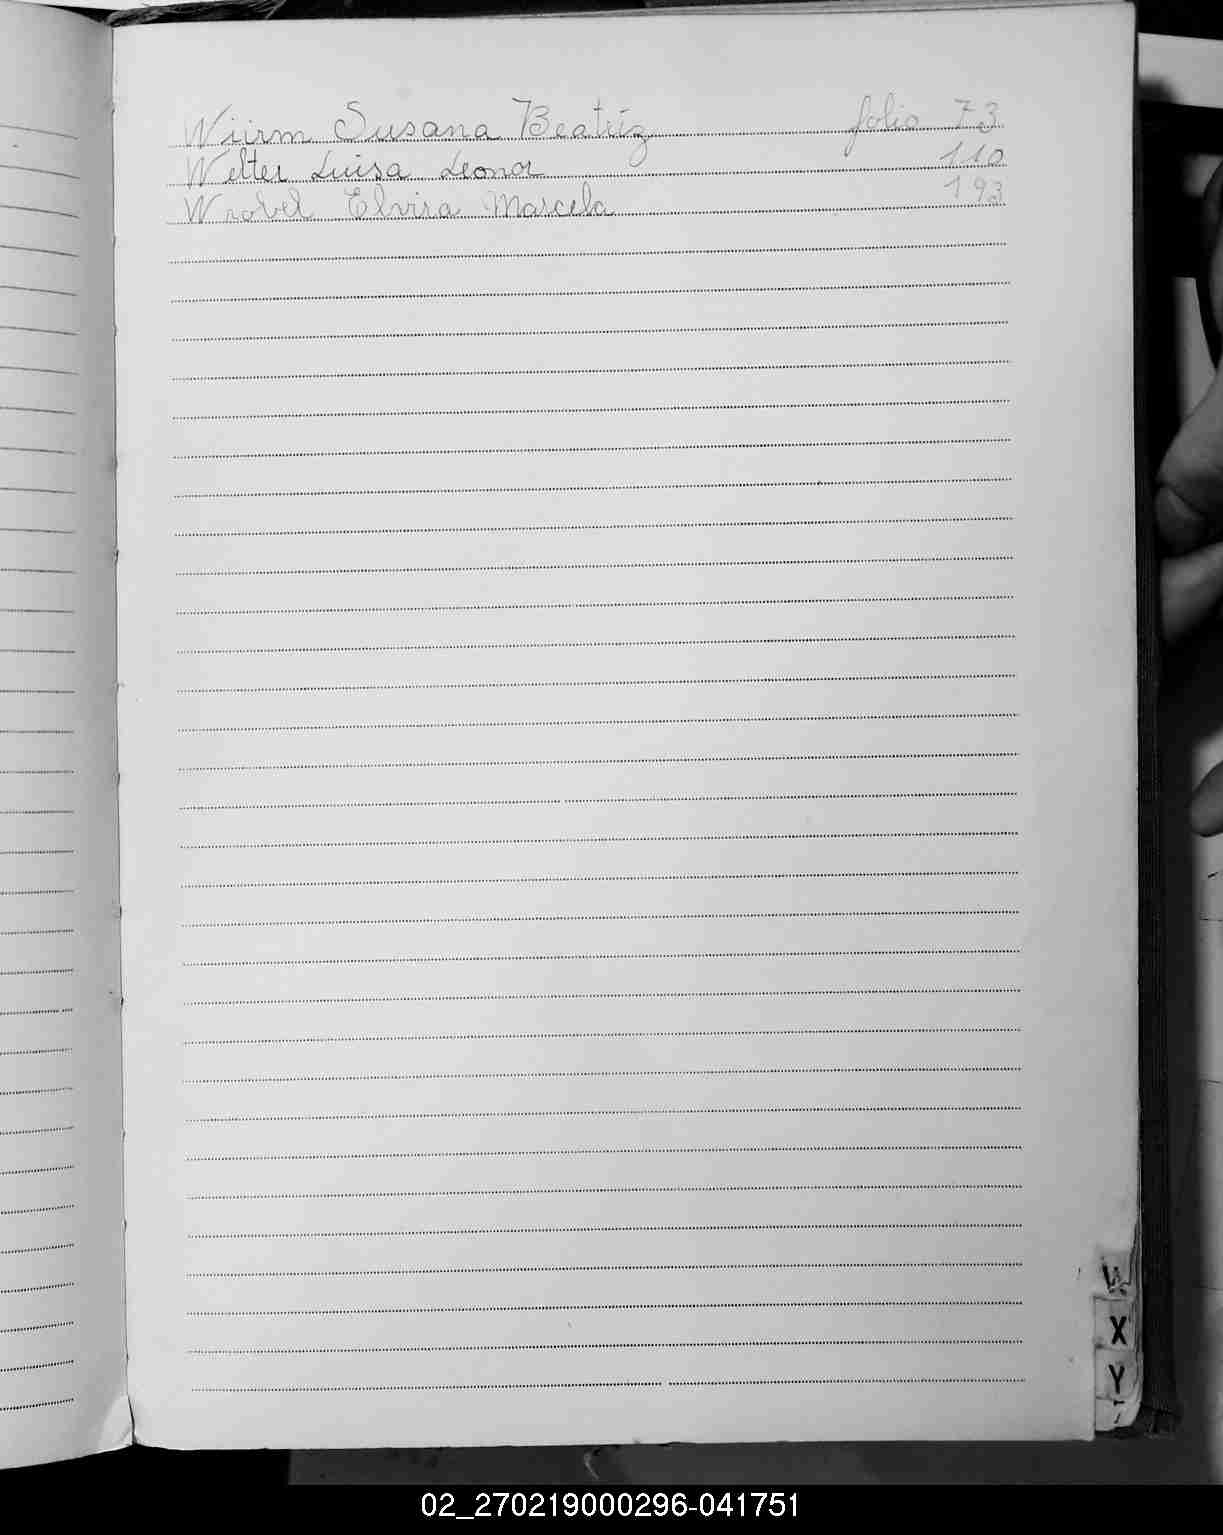 Würm Susana Beatriz folio 73
Welter Luisa Leonor 110
Wrobel Elvira Marcela 193
W
X
Y
02_270219000296-041751